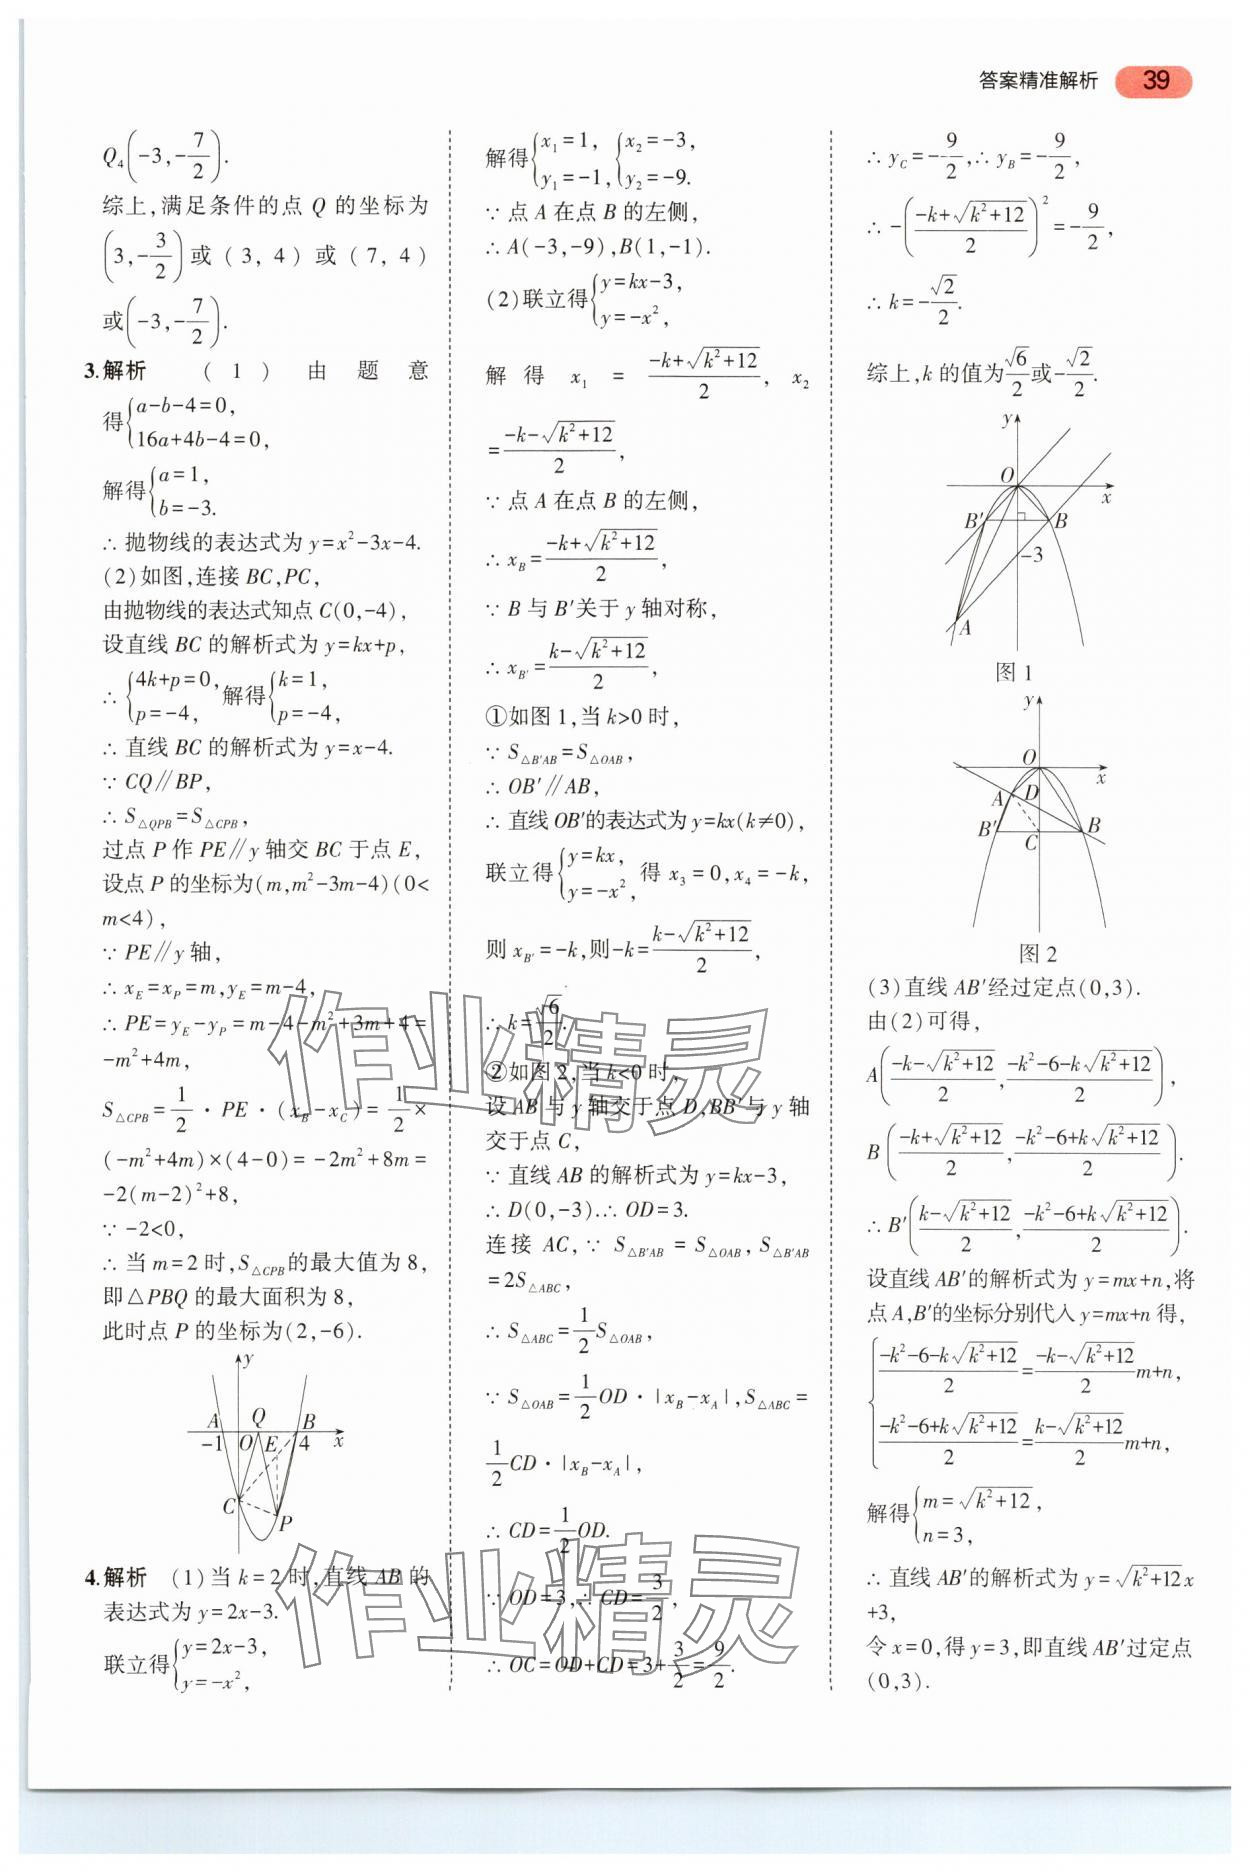 答案精准解析 39
Q₄(-3,-7/2).
综上,满足条件的点 Q 的坐标为
(3,-3/2)或(3,4)或(7,4)
或(-3,-7/2).
3.解析 (1)由题意
得{a-b-4=0,
16a+4b-4=0,
解得{a=1,
b=-3.
∴ 抛物线的表达式为 y=x²-3x-4.
(2)如图,连接 BC,PC,
由抛物线的表达式知点 C(0,-4),
设直线 BC 的解析式为 y=kx+p,
∴ {4k+p=0, p=-4, 解得{k=1, p=-4,
∴ 直线 BC 的解析式为 y=x-4.
∵ CQ∥BP,
∴ S△QPB=S△CPB,
过点 P 作 PE∥y 轴交 BC 于点 E,
设点 P 的坐标为(m,m²-3m-4)(0<
m<4),
∵ PE∥y 轴,
∴ xE=xP=m,yE=m-4,
∴ PE=yE-yP=m-4-m²+3m+4=
-m²+4m,
S△CPB=1/2·PE·(xB-xC)=1/2×
(-m²+4m)×(4-0)=-2m²+8m=
-2(m-2)²+8,
∵ -2<0,
∴ 当 m=2 时,S△CPB的最大值为 8,
即△PBQ 的最大面积为 8,
此时点 P 的坐标为(2,-6).
y
A Q B
-1 O E 4 x
C
P
4.解析 (1)当 k=2 时,直线 AB 的
表达式为 y=2x-3.
联立得{y=2x-3,
y=-x²,
解得{x₁=1, y₁=-1, {x₂=-3, y₂=-9.
∵ 点 A 在点 B 的左侧,
∴ A(-3,-9),B(1,-1).
(2)联立得{y=kx-3,
y=-x²,
解得 x₁=(-k+√(k²+12))/2, x₂
=(-k-√(k²+12))/2,
∵ 点 A 在点 B 的左侧,
∴ xB=(-k+√(k²+12))/2,
∵ B 与 B′关于 y 轴对称,
∴ xB′=(k-√(k²+12))/2,
①如图 1,当 k>0 时,
∵ S△B′AB=S△OAB,
∴ OB′∥AB,
∴ 直线 OB′的表达式为 y=kx(k≠0),
联立得{y=kx, y=-x², 得 x₃=0,x₄=-k,
则 xB′=-k,则-k=(k-√(k²+12))/2,
∴ k=√6/2.
②如图 2,当 k<0 时,
设 AB 与 y 轴交于点 D,BB′与 y 轴
交于点 C,
∵ 直线 AB 的解析式为 y=kx-3,
∴ D(0,-3).∴ OD=3.
连接 AC,∵ S△B′AB=S△OAB,S△B′AB
=2S△ABC,
∴ S△ABC=1/2S△OAB,
∵ S△OAB=1/2OD·|xB-xA|,S△ABC=
1/2CD·|xB-xA|,
∴ CD=1/2OD.
∵ OD=3,∴ CD=3/2,
∴ OC=OD+CD=3+3/2=9/2.
∴ yC=-9/2,∴ yB=-9/2,
∴ -((-k+√(k²+12))/2)²=-9/2,
∴ k=-√2/2.
综上,k 的值为√6/2或-√2/2.
y
O x
B′ B
-3
A
图 1
y
O x
A D
B′ C B
图 2
(3)直线 AB′经过定点(0,3).
由(2)可得,
A((-k-√(k²+12))/2,(-k²-6-k√(k²+12))/2),
B((-k+√(k²+12))/2,(-k²-6+k√(k²+12))/2).
∴ B′((k-√(k²+12))/2,(-k²-6+k√(k²+12))/2).
设直线 AB′的解析式为 y=mx+n,将
点 A,B′的坐标分别代入 y=mx+n 得,
{(-k²-6-k√(k²+12))/2=(-k-√(k²+12))/2m+n,
(-k²-6+k√(k²+12))/2=(k-√(k²+12))/2m+n,
解得{m=√(k²+12),
n=3,
∴ 直线 AB′的解析式为 y=√(k²+12)x
+3,
令 x=0,得 y=3,即直线 AB′过定点
(0,3).
作业精灵
作业精灵